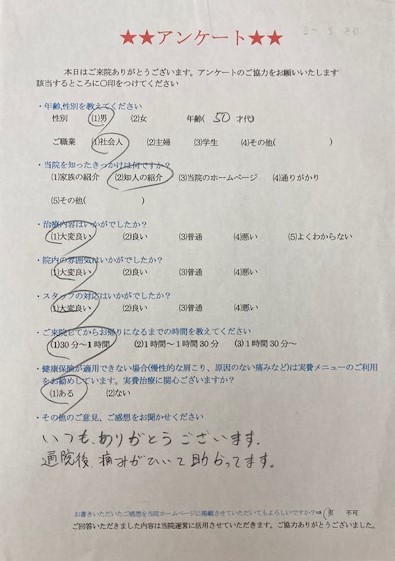 ★★アンケート★★
本日はご来院ありがとうございます。アンケートのご協力をお願いいたします
該当するところに〇印をつけてください
・年齢,性別を教えてください
性別 (1)男 (2)女 年齢( 50 才代)
ご職業 (1)社会人 (2)主婦 (3)学生 (4)その他( )
・当院を知ったきっかけは何ですか?
(1)家族の紹介 (2)知人の紹介 (3)当院のホームページ (4)通りがかり
(5)その他( )
・治療内容はいかがでしたか?
(1)大変良い (2)良い (3)普通 (4)悪い (5)よくわからない
・院内の雰囲気はいかがでしたか?
(1)大変良い (2)良い (3)普通 (4)悪い
・スタッフの対応はいかがでしたか?
(1)大変良い (2)良い (3)普通 (4)悪い
・ご来院してからお帰りになるまでの時間を教えてください
(1)30分~1時間 (2)1時間~1時間30分 (3)1時間30分~
・健康保険が適用できない場合(慢性的な肩こり、原因のない痛みなど)は実費メニューのご利用
をお勧めしています。実費治療に関心ございますか?
(1)ある (2)ない
・その他のご意見、ご感想をお聞かせください
いつも、ありがとうございます。
通院後、痛みがひいて助かってます。
お書きいただいたご感想を当院ホームページに掲載させていただいてもよろしいですか?⇒ 可 不可
ご回答いただきました内容は当院運営に活用させていただきます。ご協力ありがとうございました。